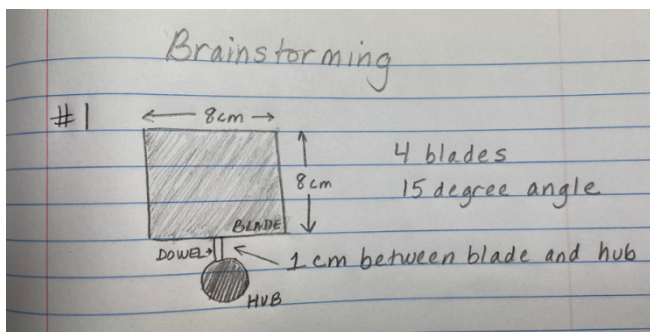 Brainstorming
#1
8cm
8cm
4 blades
15 degree angle
BLADE
DOWEL
1 cm between blade and hub
HUB